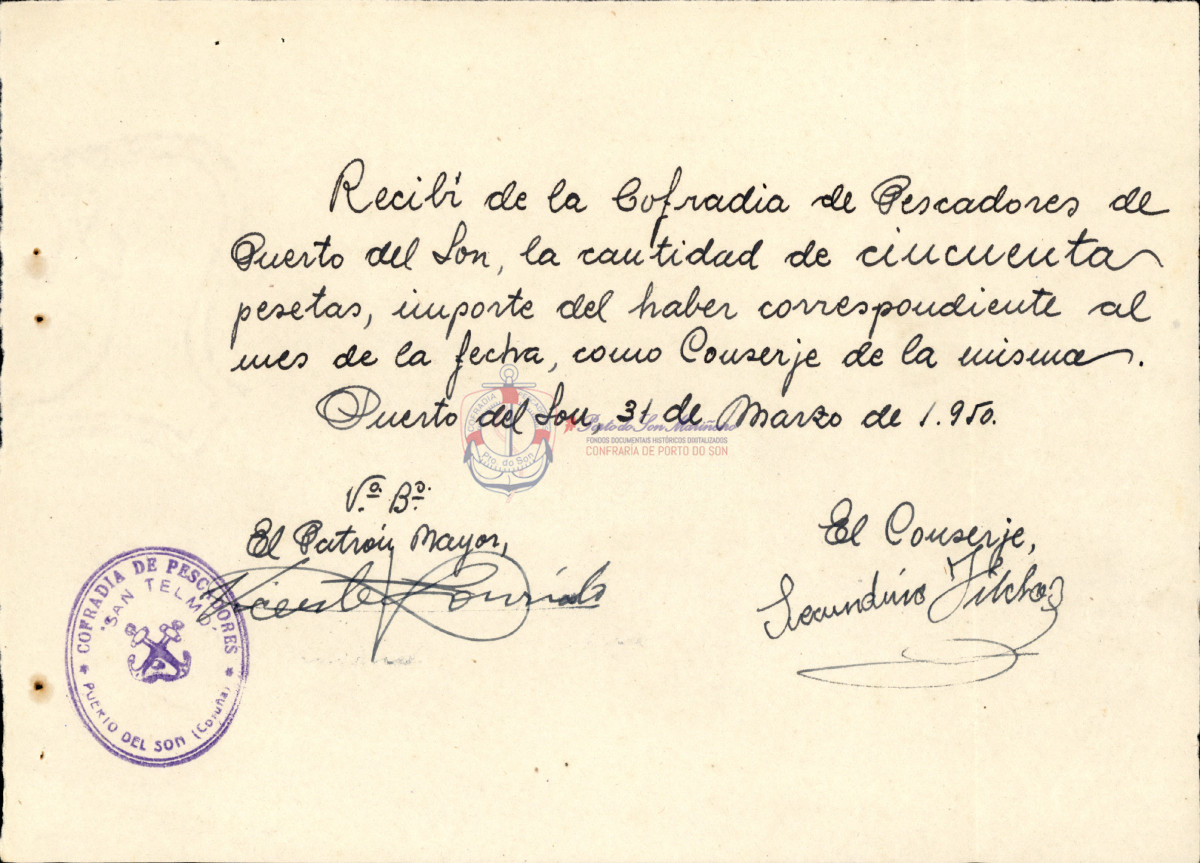 Recibí de la Cofradia de Pescadores de
Puerto del Son, la cantidad de cincuenta
pesetas, importe del haber correspondiente al
mes de la fecha, como Conserje de la misma.
Puerto del Son, 31 de Marzo de 1.950.
COFRADIA
Pto. do Son
Porto do Son Mariñeiro
FONDOS DOCUMENTAIS HISTÓRICOS DIXITALIZADOS
CONFRARIA DE PORTO DO SON
V.º B.º
El Patrón Mayor,
Vicente
El Conserje,
Secundino
COFRADIA DE PESCADORES
"SAN TELMO"
PUERTO DEL SON (Coruña)